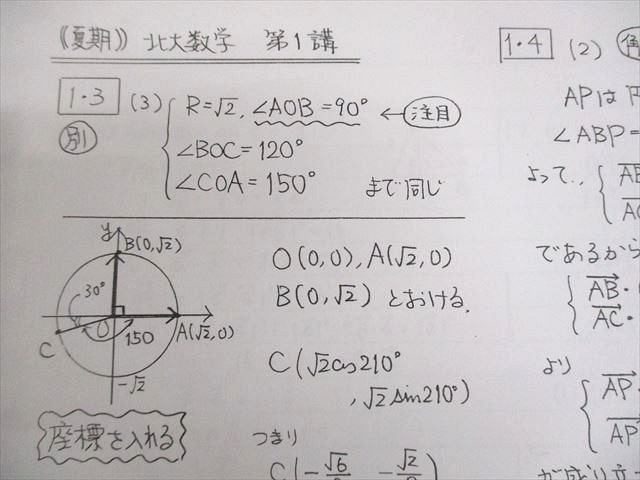 《夏期》 北大数学 第1講
1・3 (3) R=√2, ∠AOB=90° ← 注目
別
∠BOC=120°
∠COA=150° まで同じ
y
B(0,√2)
30°
O
150
A(√2,0)
C
-√2
座標を入れる
O(0,0), A(√2,0)
B(0,√2) とおける.
C(√2cos210°
, √2sin210°)
つまり
C(-√6 -√2
1・4 (2)
APは
∠ABP=
よって,
AB
AC
であるから
AB・
AC・
より
AP・
AP
が成り立